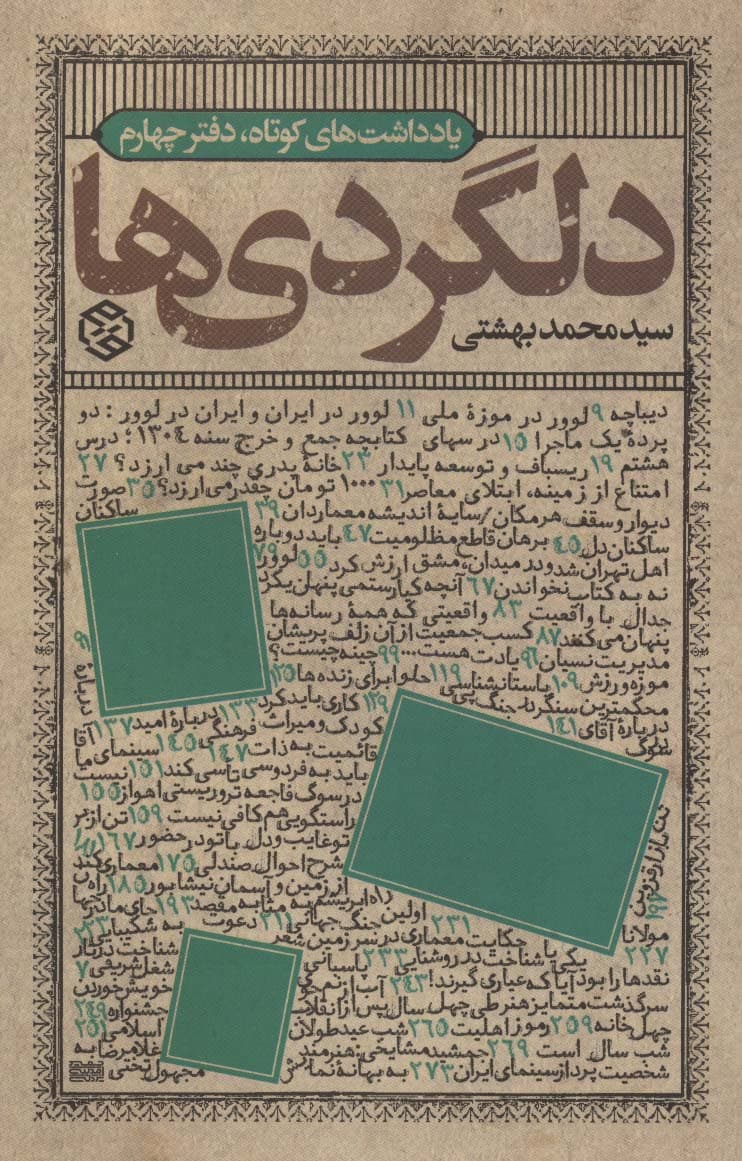 یادداشت‌های کوتاه، دفتر چهارم
دلگردی‌ها
سید محمد بهشتی
دیباچه ۹ لوور در موزهٔ ملی ۱۱ لوور در ایران و ایران در لوور : دو
پردهٔ یک ماجرا ۱۵ درسهای کتابچه جمع و خرج سنه ۱۳۰٤ ؛ درس
هشتم ۱۹ ریسباف و توسعه پایدار ۲۳ خانهٔ پدری چند می ارزد؟ ۲۷
امتناع از زمینه، ابتلای معاصر ۳۱ ۱۰۰۰ تومان چقدر می ارزد؟ ۳۵ صورت
دیوار و سقف هر مکان / سایهٔ اندیشه معماردان ۳۹ ساکنان
ساکنان دل ٤۵ برهان قاطع مظلومیت ٤۷ باید دوباره
اهل تهران شد و در میدان، مشق ارزش کرد ۵۵ لوور ۷۹
نه به کتاب نخواندن ۶۷ آنچه کیارستمی پنهان نکرد
جدال با واقعیت ۸۳ واقعیتی که همهٔ رسانه‌ها
پنهان می‌کنند ۸۷ کسب جمعیت از آن زلف پریشان
مدیریت نسیان ۹۶ یادت هست... ۹۹ چینه چیست؟
موزه و رزش ۱۰۹ باستانشناسی ۱۱۹ حلوا برای زنده ها ۱۲۵
محکمترین سنگر در جنگ پی ۱۲۹ کاری باید کرد ۱۳۳ دربارهٔ امید ۱۳۷
دربارهٔ آقای ۱٤۱ کودک و میراث فرهنگی ۱٤۵ سینمای ما
در سوگ قائمیت به ذات ۱٤۷
باید به فردوسی تأسی کند ۱۵۱ نیست
در سوگ فاجعه تروریستی اهواز ۱۵۵
راستگویی هم کافی نیست ۱۵۹ تن از بر
تو غایب و دل با تو در حضور ۱۶۷
شرح احوال صندلی ۱۷۵ معماری کند
از زمین و آسمان نیشابور ۱۸۵ راه
راه ابریشم به مثابه مقصد ۱۹۳ جای مادر
اولین جنگ جهانی ۲۱۱ دعوت به شکیبایی ۲۲۳
مولانا ۲۳۱ حکایت معماری در سرزمین شعر
۲۲۷ یکی یا شناخت در روشنایی ۲۳۳ پاسبانی شناخت در بار
نقدها را بود آیا که عیاری گیرند! ۲٤۳ آب از نم جو شغل شریفی ۷
سرگذشت متمایز هنر طی چهل سال پس از انقلاب خویش خوردن
چهل خانه ۲۵۹ رموز اهلیت ۲۶۵ شب عید طولان جشنواره ۲٤۹
شب سال است ۲۶۹ جمشید مشایخی: هنرمند اسلامی ۲۵۱
شخصیت پرداز سینمای ایران ۲۷۳ به بهانهٔ نمایش غلامرضا به
مجهول تختی